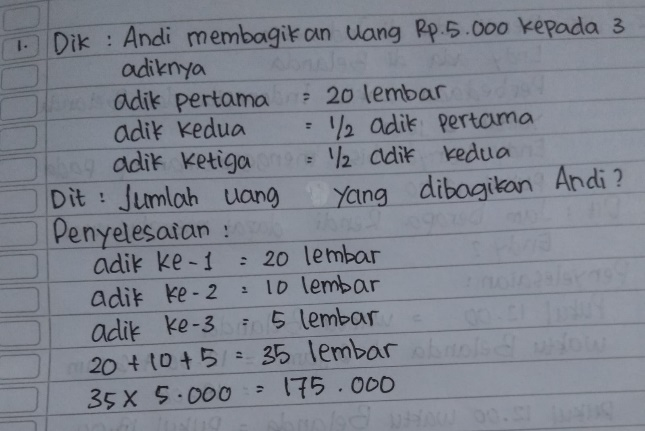 1. Dik : Andi membagikan uang Rp.5.000 kepada 3
adiknya
adik pertama = 20 lembar
adik kedua = 1/2 adik pertama
adik ketiga = 1/2 adik kedua
Dit : Jumlah uang yang dibagikan Andi?
Penyelesaian :
adik ke-1 = 20 lembar
adik ke-2 = 10 lembar
adik ke-3 = 5 lembar
20 + 10 + 5 = 35 lembar
35 x 5.000 = 175.000